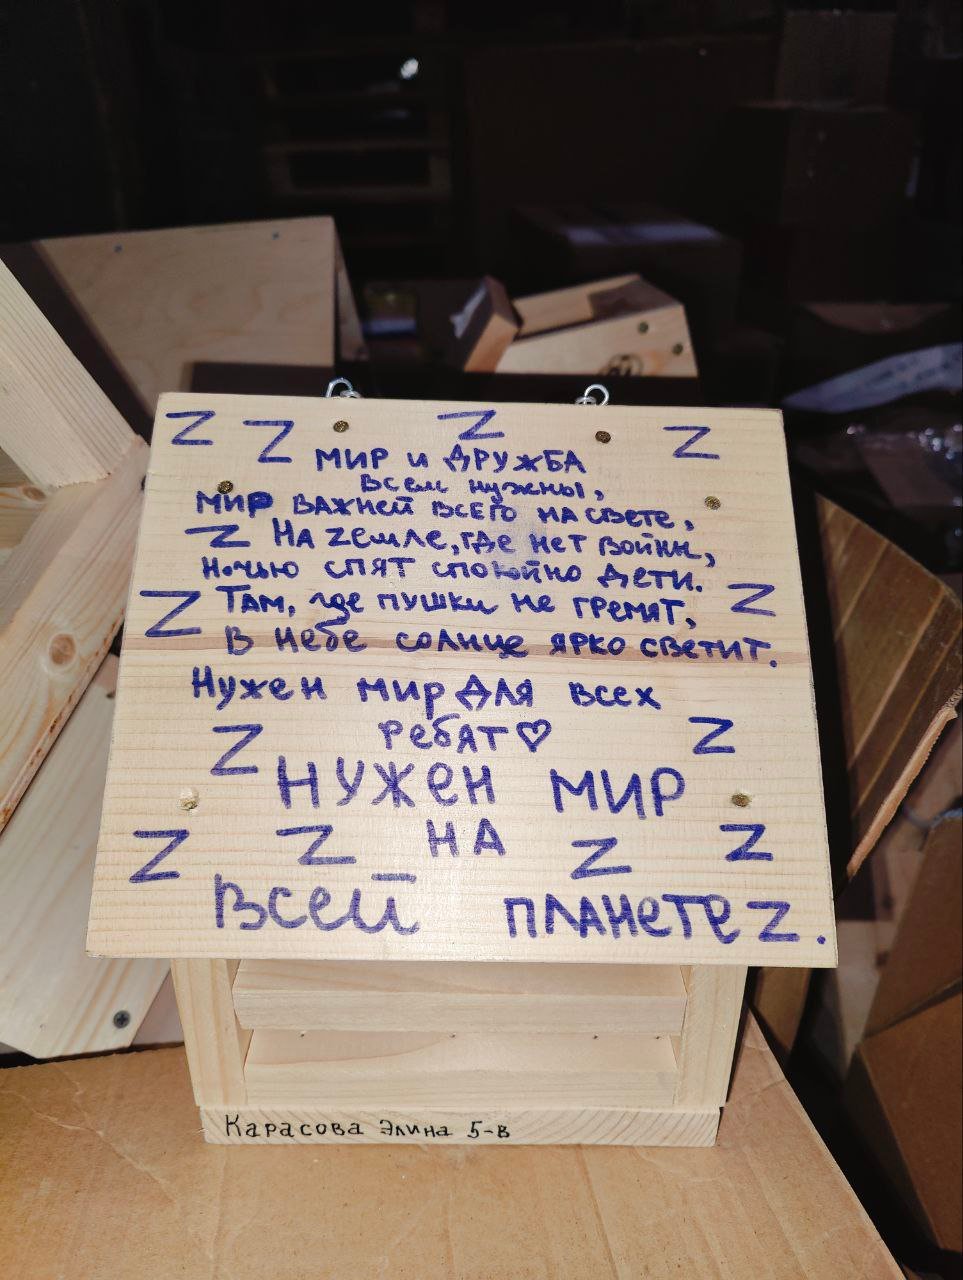 Z Z Z Z
МИР И ДРУЖБА
всем нужны,
МИР ВАЖНЕЙ ВСЕГО НА СВЕТЕ,
Z НА Zемле, где нет войны,
Ночью спят спокойно дети.
Z Там, где пушки не гремят, Z
В небе солнце ярко светит.
Нужен мир для всех
ребят♡
Z Z
НУЖЕН МИР
Z Z НА Z Z
ВСЕЙ ПЛАНЕТЕ Z.
Карасова Элина 5-в